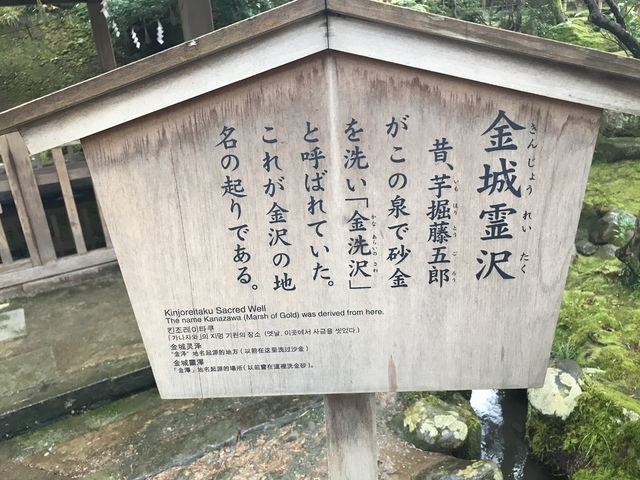 金城霊沢
きんじょうれいたく
昔、芋掘藤五郎
いもほりとうごろう
がこの泉で砂金
を洗い「金洗沢」
かなあらいのさわ
と呼ばれていた。
これが金沢の地
名の起りである。
Kinjoreitaku Sacred Well
The name Kanazawa (Marsh of Gold) was derived from here.
킨조레이타쿠
「가나자와」의 지명 기원의 장소 (옛날, 이곳에서 사금을 씻었다.)
金城灵泽
“金泽”地名起源的地方（以前在这里洗过沙金）
金城靈澤
「金澤」地名起源的場所（以前曾在這裡洗金砂。）